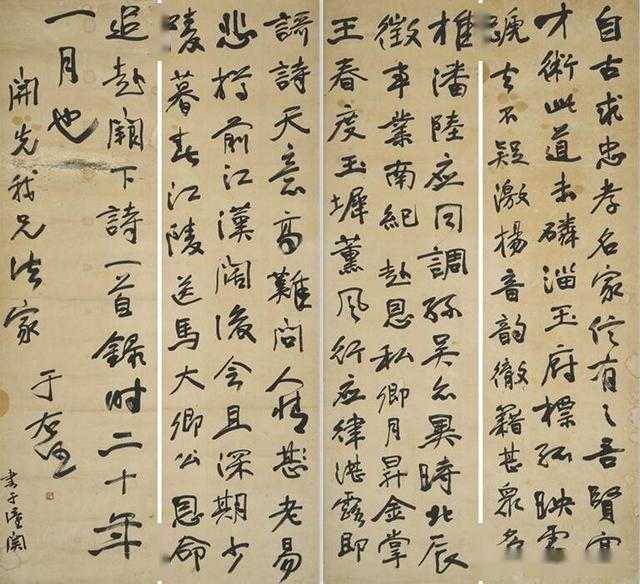 自古求忠孝名家信有之吾賢富
才術此道未磷淄玉府標孤映霜
蹏去不疑激楊音韵徹籍甚眾多
推潘陸應同調孫吳亦異時北辰
徵事業南紀赴恩私卿月昇金掌
王春度玉墀薰風行應律湛露即
謌詩天意高難問人情老易
悲樽前江漢闊後會且深期少
陵暮春江陵送馬大卿公恩命
追赴闕下詩一首錄時二十年
一月也
開先我兄法家
于右任
書于潼關